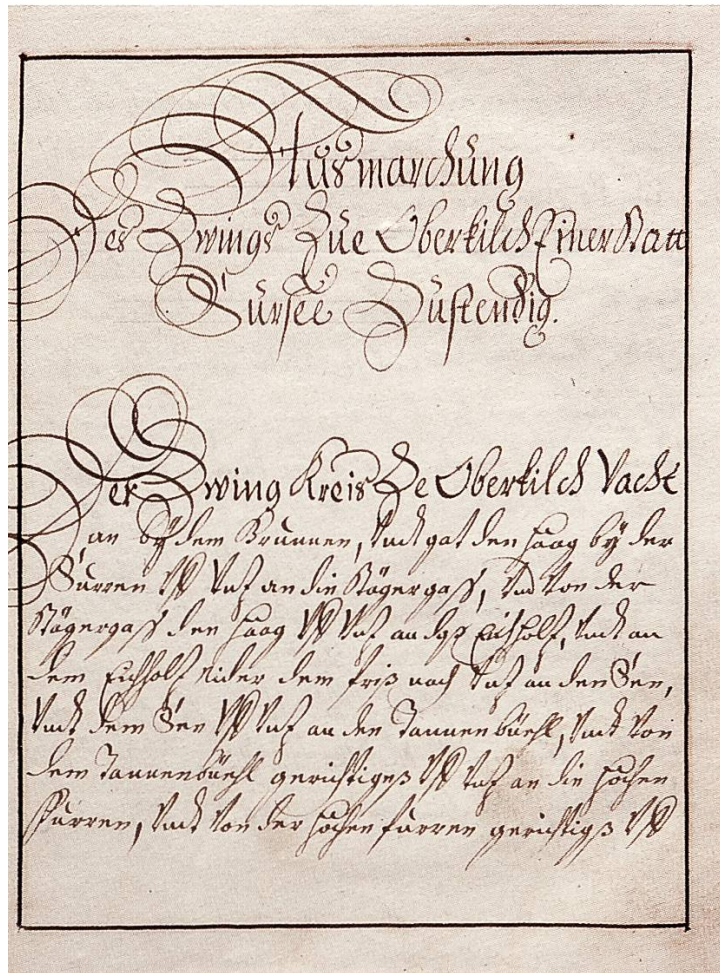 Ausmarchung
Des Zwings Zue Oberkilch Einer Statt
Sursee Zustendig.
Der Zwing Kreis Ze Oberkilch Vacht
an by dem Brunnen, Vndt gat den Haag by der
Surren Vff Vntz an die Stägergass, Vnd Von der
Stägergass den Haag Vff Vntz an dz Eichholtz, Vndt an
dem Eichholtz nider dem friss nach Vntz an den See,
Vndt dem See Vff Vntz an den Tannenbüehl, Vndt Von
dem Tannenbüehl gerichtigss Vff Vntz an die Hochen
Furren, Vndt Von der Hochen furren gerichtigss Vff